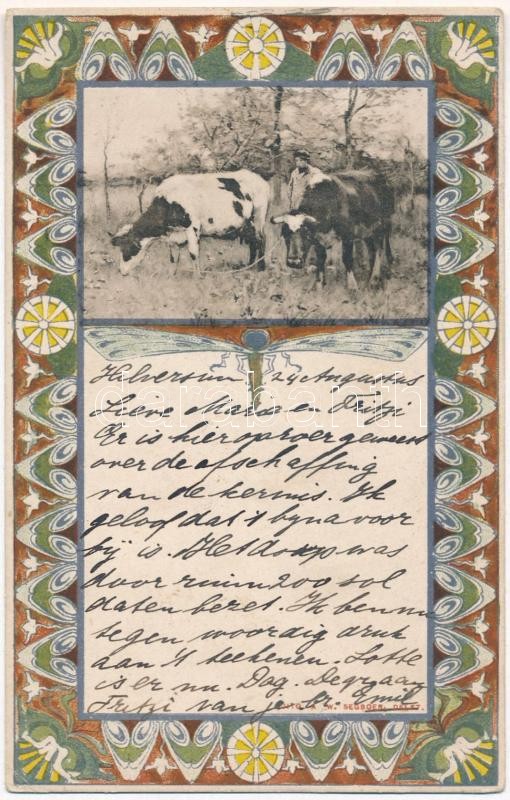 Hilversum 24 Augustus
Lieve Mama en Fritzi
Er is hier oproer geweest
over de afschaffing
van de kermis. Ik
geloof dat 't byna voor
by is. Het dorp was
door ruim 200 sol
daten bezet. Ik ben nu
tegen woordig druk
aan 't teekenen. Lotte
is er nu. Dag. Degr. aan
Fritzi van je br. Emil
W. SEGBOER, DELFT.